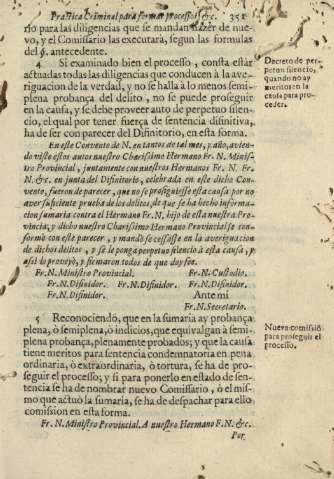 Practica criminal para formar processos, &c. 351
rio para las diligencias que se mandan hazer de nue-
vo, y el Comissario las executará, segun las formulas
del §. antecedente.
4 Si examinado bien el processo, consta estàr
actuadas todas las diligencias que conducen à la ave-
riguacion de la verdad, y no se halla à lo menos semi-
plena probança del delito, no se puede proseguir
en la causa, y se debe proveer auto de perpetuo silen-
cio, el qual por tener fuerça de sentencia difinitiva,
ha de ser con parecer del Difinitorio, en esta forma.
Decreto de per-
petuo silencio,
quando no ay
meritos en la
causa para pro-
ceder.
En este Convento de N. en tantos de tal mes, y año, avien-
do visto estos autos nuestro Charissimo Hermano Fr. N. Minis-
tro Provincial, juntamente con nuestros Hermanos Fr. N. Fr.
N. &c. en junta del Difinitorio, celebrada en este dicho Con-
vento, fueron de parecer, que no se prosiguiesse esta causa por no
aver suficiente prueba de los delitos, de que se ha hecho informa-
cion sumaria contra el Hermano Fr. N. hijo de esta nuestra Pro-
vincia, y dicho nuestro Charissimo Hermano Provincial se con-
formò con este parecer, y mandò se cessasse en la averiguacion
de dichos delitos, y se le ponga perpetuo silencio à esta causa, y
assi lo proveyò, y firmaron todos de que doy fee.
Fr. N. Ministro Provincial. Fr. N. Custodio.
Fr. N. Difinidor. Fr. N. Difinidor. Fr. N. Difinidor.
Fr. N. Difinidor. Ante mi
Fr. N. Secretario.
5 Reconociendo, que en la sumaria ay probança
plena, ò semiplena, ò indicios, que equivalgan à semi-
plena probança, plenamente probados; y que la causa
tiene meritos para sentencia condemnatoria en pena
ordinaria, ò extraordinaria, ò tortura, se ha de pro-
seguir el processo; y si para ponerlo en estado de sen-
tencia se ha de nombrar nuevo Comissario, ò el mis-
mo que actuò la sumaria, se ha de despachar para ello
comission en esta forma.
Nueva comissiõ
para proseguir el
processo.
Fr. N. Ministro Provincial. A nuestro Hermano F. N. &c.
Por